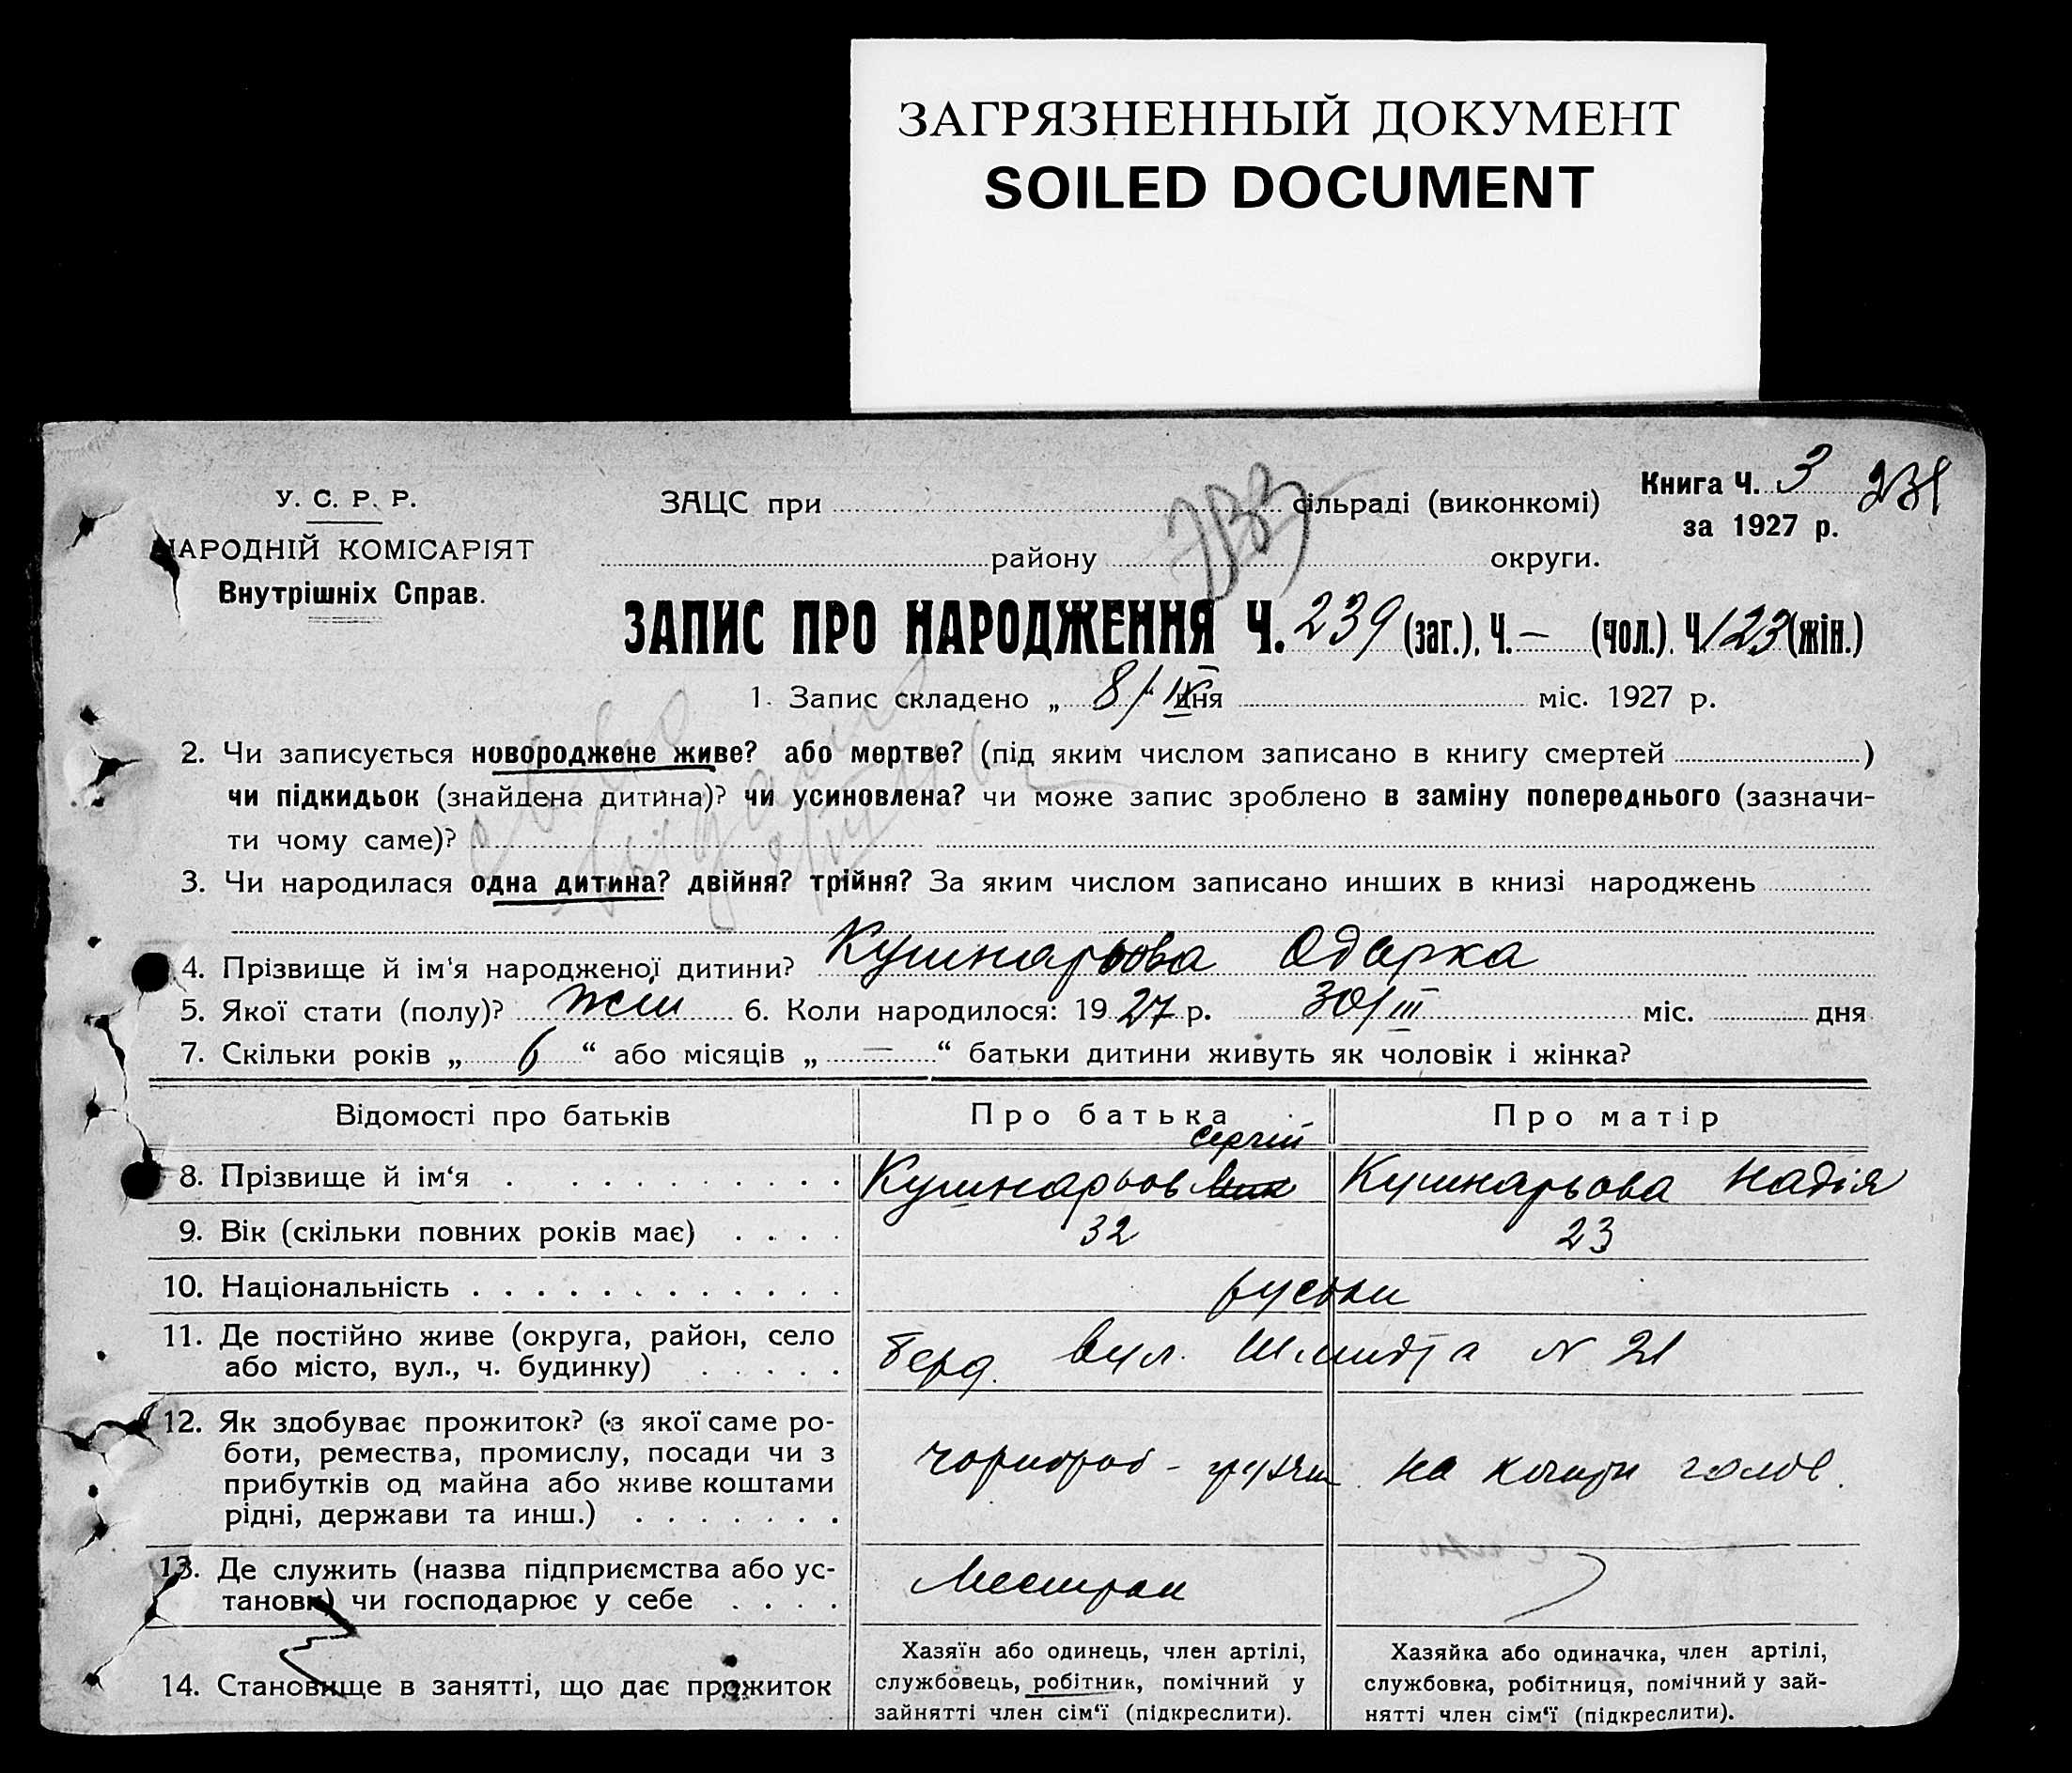 ЗАГРЯЗНЕННЫЙ ДОКУМЕНТ
SOILED DOCUMENT
У. С. Р. Р.
НАРОДНІЙ КОМІСАРІЯТ
Внутрішніх Справ.
ЗАЦС при сільраді (виконкомі)
району округи.
Книга Ч. 3
за 1927 р.
ЗАПИС ПРО НАРОДЖЕННЯ Ч. 239 (заг.), Ч. — (чол.). Ч. 123 (жін.)
1. Запис складено „ 8/IV “ дня міс. 1927 р.
2. Чи записується новороджене живе? або мертве? (під яким числом записано в книгу смертей )
чи підкидьок (знайдена дитина)? чи усиновлена? чи може запис зроблено в заміну попереднього (зазначи-
ти чому саме)?
3. Чи народилася одна дитина? двійня? трійня? За яким числом записано инших в книзі народжень
4. Прізвище й ім'я народженої дитини? Кушнарьова Одарка
5. Якої стати (полу)? жін 6. Коли народилося: 1927 р. 30/III міс. дня
7. Скільки років „ 6 “ або місяців „ — “ батьки дитини живуть як чоловік і жінка?
Відомості про батьків Про батька Про матір
Сергій
8. Прізвище й ім‘я Кушнарьов Кушнарьова Надія
9. Вік (скільки повних років має) 32 23
10. Національність руські
11. Де постійно живе (округа, район, село
або місто, вул., ч. будинку) Берд. вул. Шмидта N 21
12. Як здобуває прожиток? (з якої саме ро-
боти, ремества, промислу, посади чи з
прибутків од майна або живе коштами
рідні, держави та инш.) чорнороб - на кошти голов.
13. Де служить (назва підприємства або ус-
танови) чи господарює у себе
14. Становище в занятті, що дає прожиток
Хазяїн або одинець, член артілі,
службовець, робітник, помічний у
зайнятті член сім‘ї (підкреслити).
Хазяйка або одиначка, член артілі,
службовка, робітниця, помічний у зай-
нятті член сім‘ї (підкреслити).